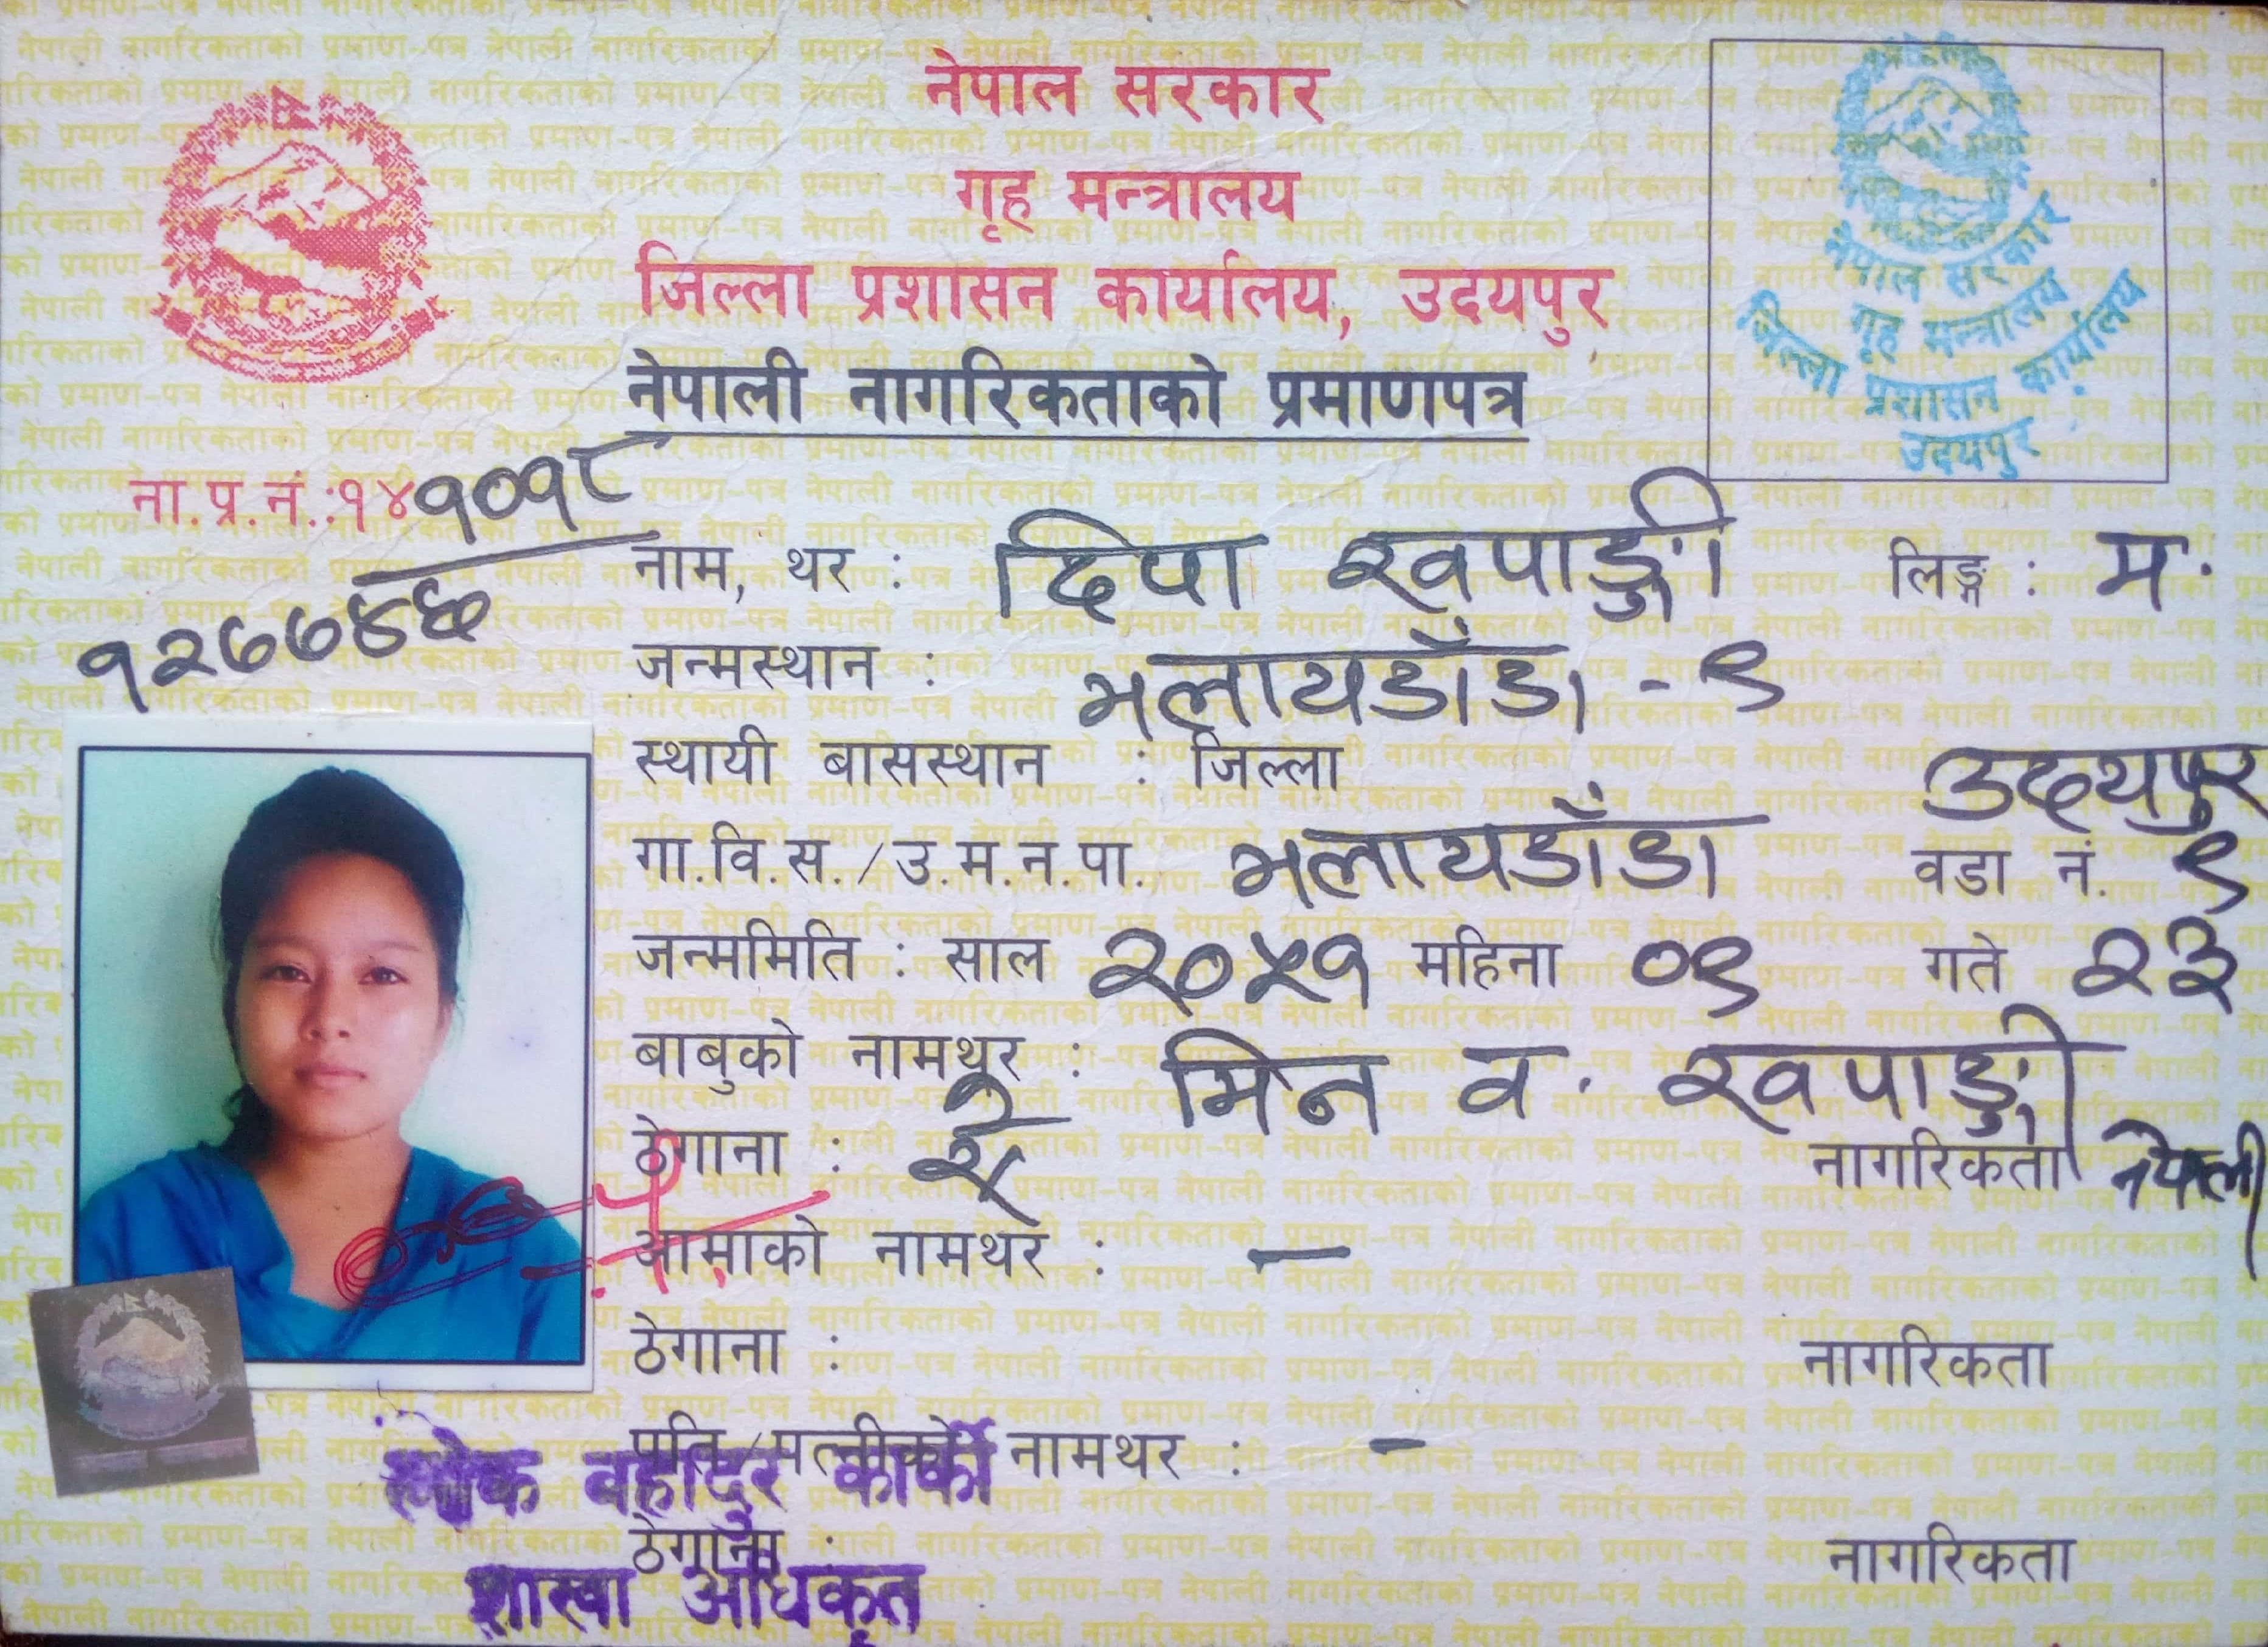 नेपाल सरकार
गृह मन्त्रालय
जिल्ला प्रशासन कार्यालय, उदयपुर
नेपाली नागरिकताको प्रमाणपत्र
नेपाल सरकार
गृह मन्त्रालय
जिल्ला प्रशासन कार्यालय
उदयपुर
ना.प्र.नं.:१४१०१८
१२७७४६
नाम, थर : दिपा खपाङ्गी लिङ्ग : म.
जन्मस्थान : भलायडाँडा - ९
स्थायी बासस्थान : जिल्ला उदयपुर
गा.वि.स./उ.म.न.पा. भलायडाँडा वडा नं. ९
जन्ममिति : साल २०५१ महिना ०९ गते २३
बाबुको नामथर : मिन ब. खपाङ्गी
ठेगाना : ऐ ऐ नागरिकता नेपाली
आमाको नामथर : -
ठेगाना : नागरिकता
पति/पत्नीको नामथर : -
बहादुर कार्की
ठेगाना : नागरिकता
शाखा अधिकृत